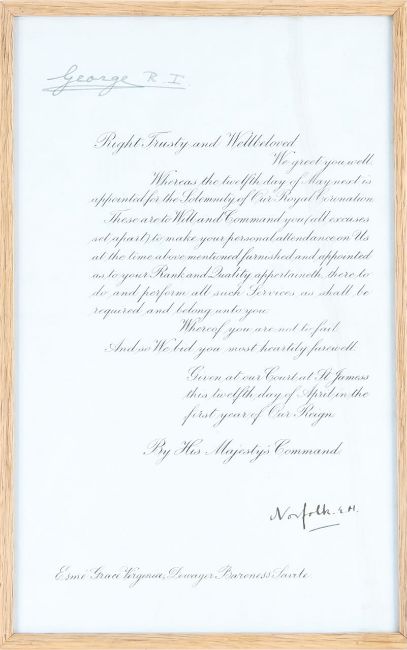 George R. I.
Right Trusty and Wellbeloved
We greet you well.
Whereas the twelfth day of May next is
appointed for the Solemnity of Our Royal Coronation
These are to Will and Command you (all excuses
set apart) to make your personal attendance on Us
at the time above mentioned furnished and appointed
as to your Rank and Quality appertaineth, there to
do and perform all such Services as shall be
required and belong unto you
Whereof you are not to fail
And so We bid you most heartily farewell.
Given at our Court at St James's
this twelfth day of April in the
first year of Our Reign
By His Majesty's Command
Norfolk. E. M.
Esmé Grace Virginia, Dowager Baroness Savile